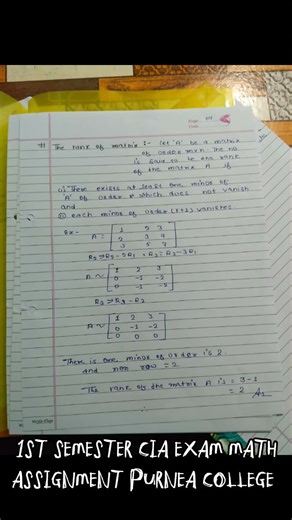 The rank of matrix :- let 'A' be a matrix
of order mxn. The no
is said to be the rank
of the matrix A if
(i) There exists at least one minor of
'A' of order r which does not vanish
and
(ii) each minor of order (r+1) vanishes.
Ex- A = [1 2 3
2 3 4
3 5 7]
R2 → R2 - 2R1, R3 → R3 - 3R1
A ~ [1 2 3
0 -1 -2
0 -1 -2]
R3 → R3 - R2
A ~ [1 2 3
0 -1 -2
0 0 0]
There is one minor of order is 2.
and non row = 2
The rank of the matrix A is = 3-1
= 2 Ans
1ST SEMESTER CIA EXAM MATH
ASSIGNMENT PURNEA COLLEGE